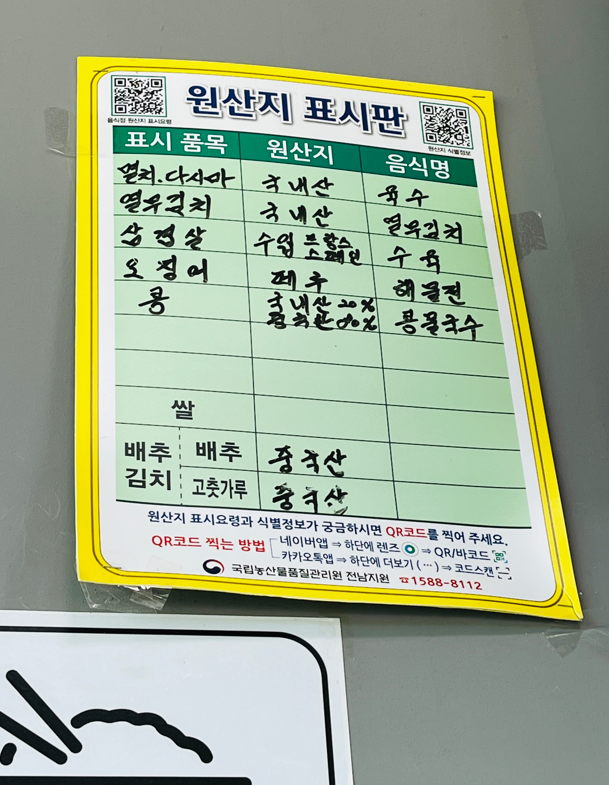 원산지 표시판
음식점 원산지 표시요령
원산지 식별정보
표시 품목 원산지 음식명
멸치.다시마 국내산 육수
열무김치 국내산 열무김치
삼겹살 수입 프랑스 스페인 수육
오징어 페루 해물전
콩 국내산 20% 콩물국수
쌀
배추김치 배추 중국산
고춧가루 중국산
원산지 표시요령과 식별정보가 궁금하시면 QR코드를 찍어 주세요.
QR코드 찍는 방법
네이버앱 ⇒ 하단에 렌즈 ⇒ QR/바코드
카카오톡앱 ⇒ 하단에 더보기 (···) ⇒ 코드스캔
국립농산물품질관리원 전남지원 ☎1588-8112